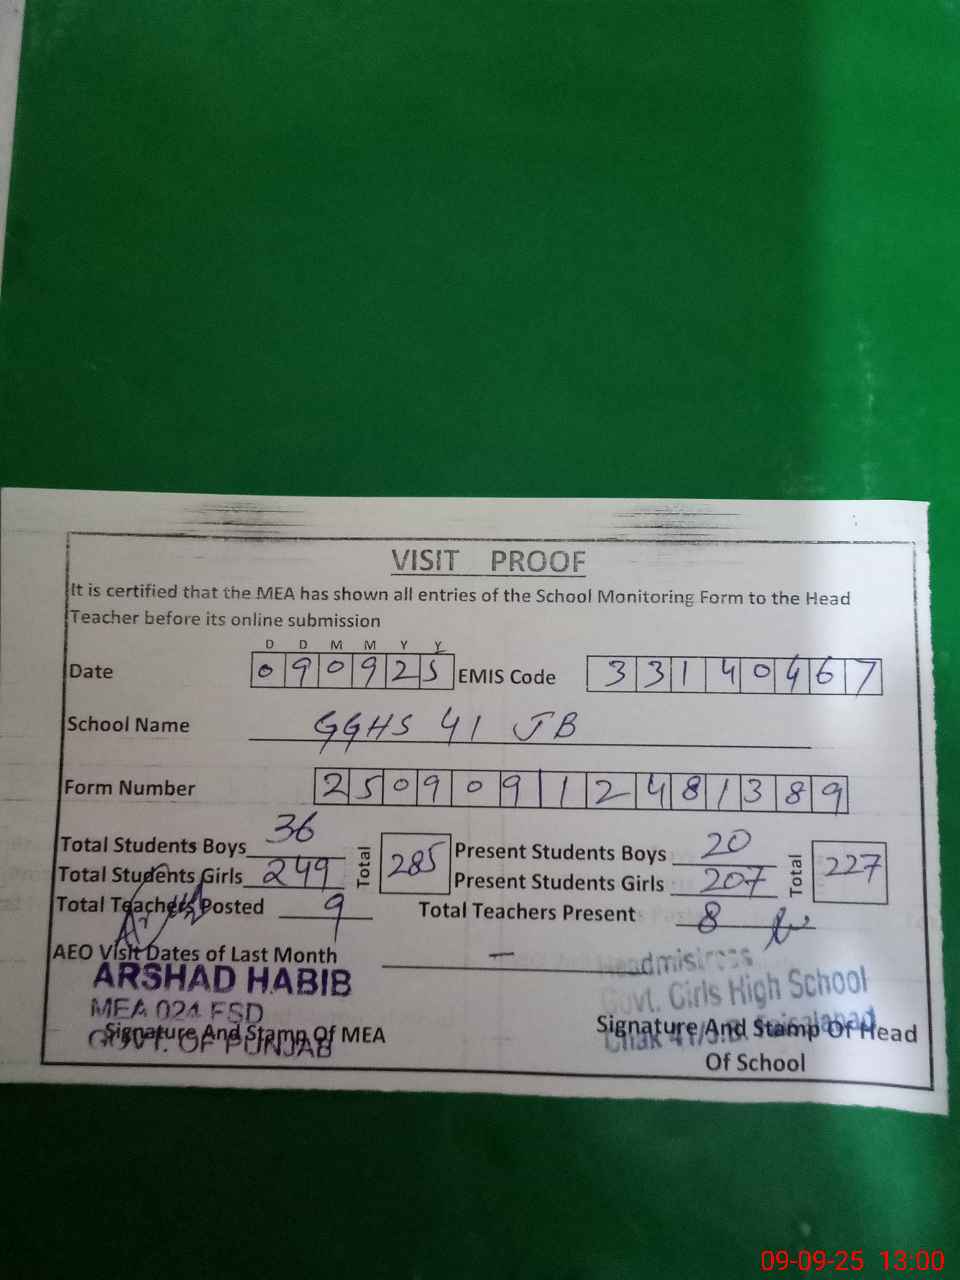 VISIT PROOF
It is certified that the MEA has shown all entries of the School Monitoring Form to the Head
Teacher before its online submission
D D M M Y Y
Date 0 9 0 9 2 5 EMIS Code 3 3 1 4 0 4 6 7
School Name GGHS 41 JB
Form Number 2 5 0 9 0 9 1 2 4 8 1 3 8 9
Total Students Boys 36 Total 285 Present Students Boys 20 Total 227
Total Students Girls 249 Present Students Girls 207
Total Teachers Posted 9 Total Teachers Present 8
AEO Visit Dates of Last Month —
ARSHAD HABIB
MEA 024 FSD
GOVT. OF PUNJAB
Signature And Stamp Of MEA
Headmistress
Govt. Girls High School
Chak 41/J.B. Faisalabad
Signature And Stamp Of Head
Of School
09-09-25 13:00